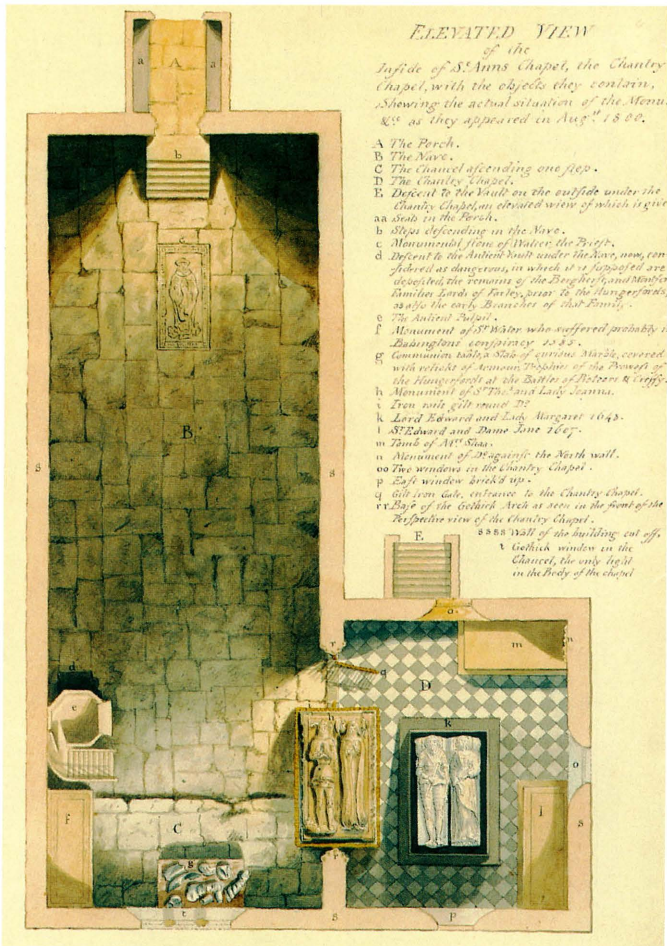 ELEVATED VIEW
of the
Inside of St. Anns Chapel, the Chantry
Chapel, with the objects they contain,
Shewing the actual situation of the Monu.
&cc as they appeared in Augst. 1800.
A The Porch.
B The Nave.
C The Chancel ascending one step.
D The Chantry Chapel.
E Descent to the Vault on the outside under the
Chantry Chapel, an elevated view of which is give
aa Seats in the Porch.
b Steps descending in the Nave.
c Monumental stone of Walter, the Priest.
d Descent to the Antient Vault under the Nave, now, con
sidered as dangerous, in which it is supposed are
deposited, the remains of the and
Families Lords of Farley, prior to the Hungerfords,
as also the early Branches of that Family.
e The Antient Pulpit.
f Monument of Sr. Walter who suffered probably i
Babingtons conspiracy
g Communion table, a Slab of curious Marble, covered
with relicks of Armour, Trophies of the Prowess of
the Hungerfords at the Battles of &
h Monument of Sr. Thos. and Lady Joanna.
i Iron rails gilt round Do.
k Lord Edward and Lady Margaret 1648.
l Sr. Edward and Dame Jane 1607.
m Tomb of Mrs. Shaa.
n Monument of Do. against the North wall.
oo Two windows in the Chantry Chapel.
p East window brick'd up.
q Gilt Iron Gate, entrance to the Chantry Chapel.
rr Base of the Gothick Arch as seen in the front of the
Perspective view of the Chantry Chapel.
ssss Wall of the building cut off.
t Gothick window in the
Chancel, the only light
in the Body of the chapel
a A a
b
c
B
s s
E
o
r
n
m
q
D
d
e
k
o
f
l
s
C
g
r
t
s
p